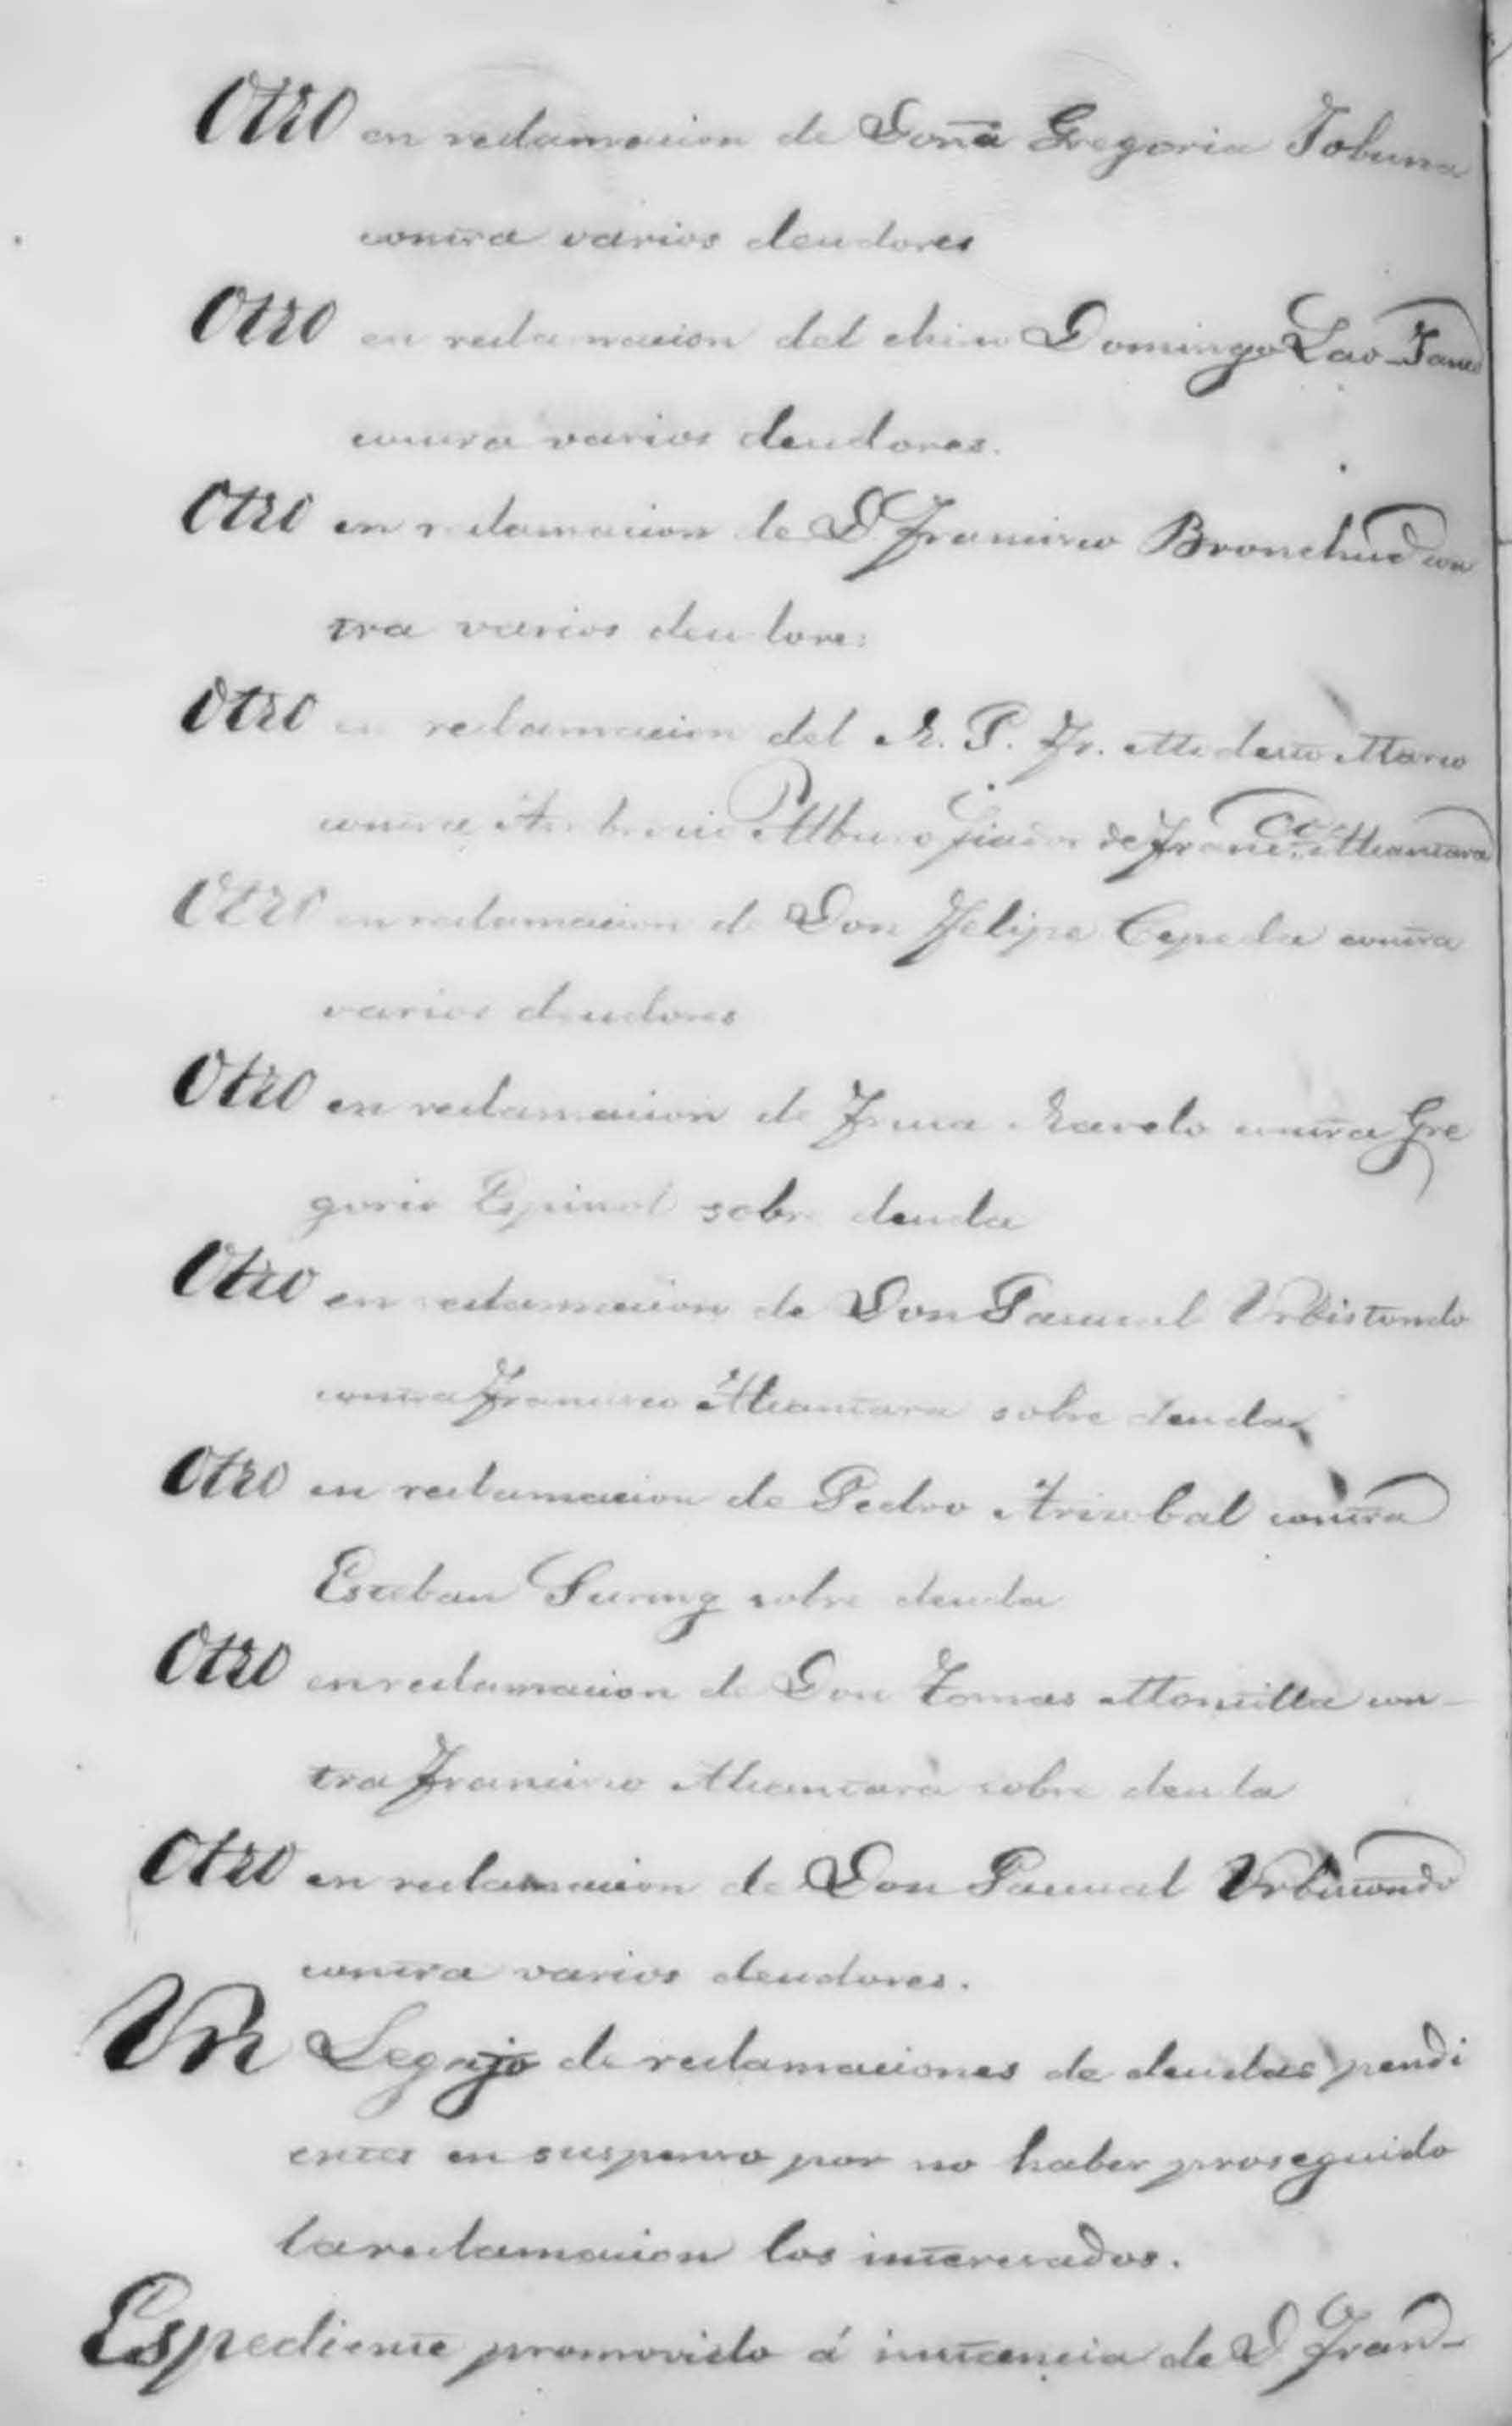 Otro en reclamacion de Doña Gregoria
contra varios deudores
Otro en reclamacion del chino Domingo Lao-
contra varios deudores.
Otro en reclamacion de D. Francisco Bronchud con
tra varios deudores
Otro en reclamacion del R. P. Fr. Modesto Marco
contra Ambrocio fiador de Franco. Alcantara
Otro en reclamacion de Don Felipe Cepeda contra
varios deudores
Otro en reclamacion de Ravelo contra Gre
gorio Espinol sobre deuda
Otro en reclamacion de Don Pascual Urbistondo
contra Francisco Alcantara sobre deuda
Otro en reclamacion de Pedro Arizobal contra
Esteban sobre deuda
Otro en reclamacion de Don Tomas Moncilla con-
tra Francisco Alcantara sobre deuda
Otro en reclamacion de Don Pascual Urbistondo
contra varios deudores.
Un Legajo de reclamaciones de deudas pendi
entes en suspenso por no haber proseguido
la reclamacion los interesados.
Espediente promovido á instancia de D Fran-